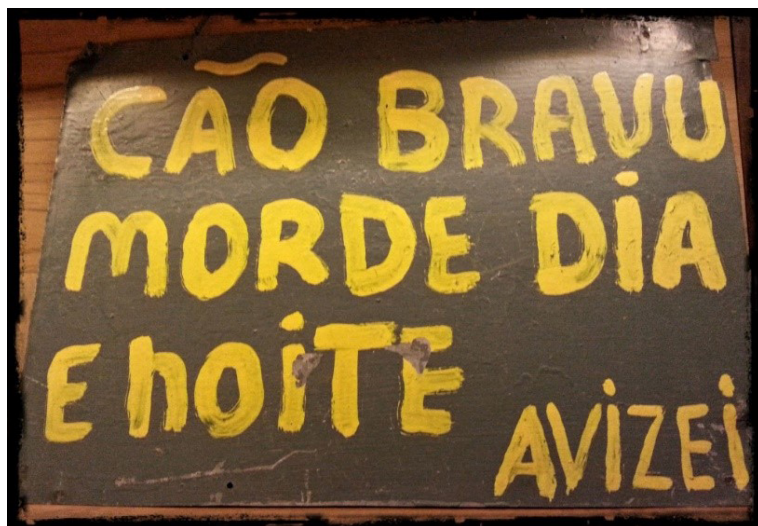 CÃO BRAVU
MORDE DIA
E hOiTE
AVIZEi